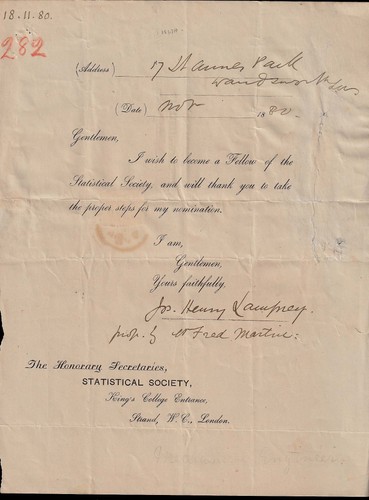 18.11.80.
282
(Address) 17 St Annes Park
Wandsworth
(Date) Nov 1880.
Gentlemen,
I wish to become a Fellow of the
Statistical Society, and will thank you to take
the proper steps for my nomination.
I am,
Gentlemen,
Yours faithfully,
Jos. Henry Lamprey.
prop. by Fred Martin:
The Honorary Secretaries,
STATISTICAL SOCIETY,
King's College Entrance,
Strand, W.C., London.